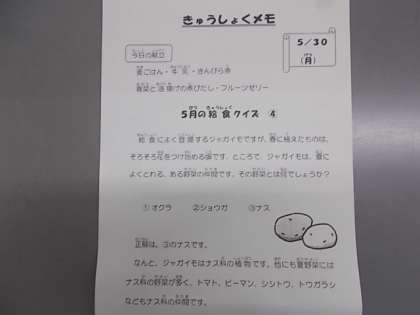 きゅうしょくメモ
5/30
(月)
今日の献立
麦ごはん・牛乳・きんぴら煮
青菜と油揚げの煮びたし・フルーツゼリー
5月の給食クイズ ④
給食によく登場するジャガイモですが、春に植えたものは、
そろそろ花をつけ始める頃です。ところで、ジャガイモは、夏に
よくとれる、ある野菜の仲間です。その野菜とは何でしょうか?
①オクラ ②ショウガ ③ナス
正解は、③のナスです。
なんと、ジャガイモはナス科の植物です。他にも夏野菜には
ナス科の野菜が多く、トマト、ピーマン、シシトウ、トウガラシ
などもナス科の仲間です。